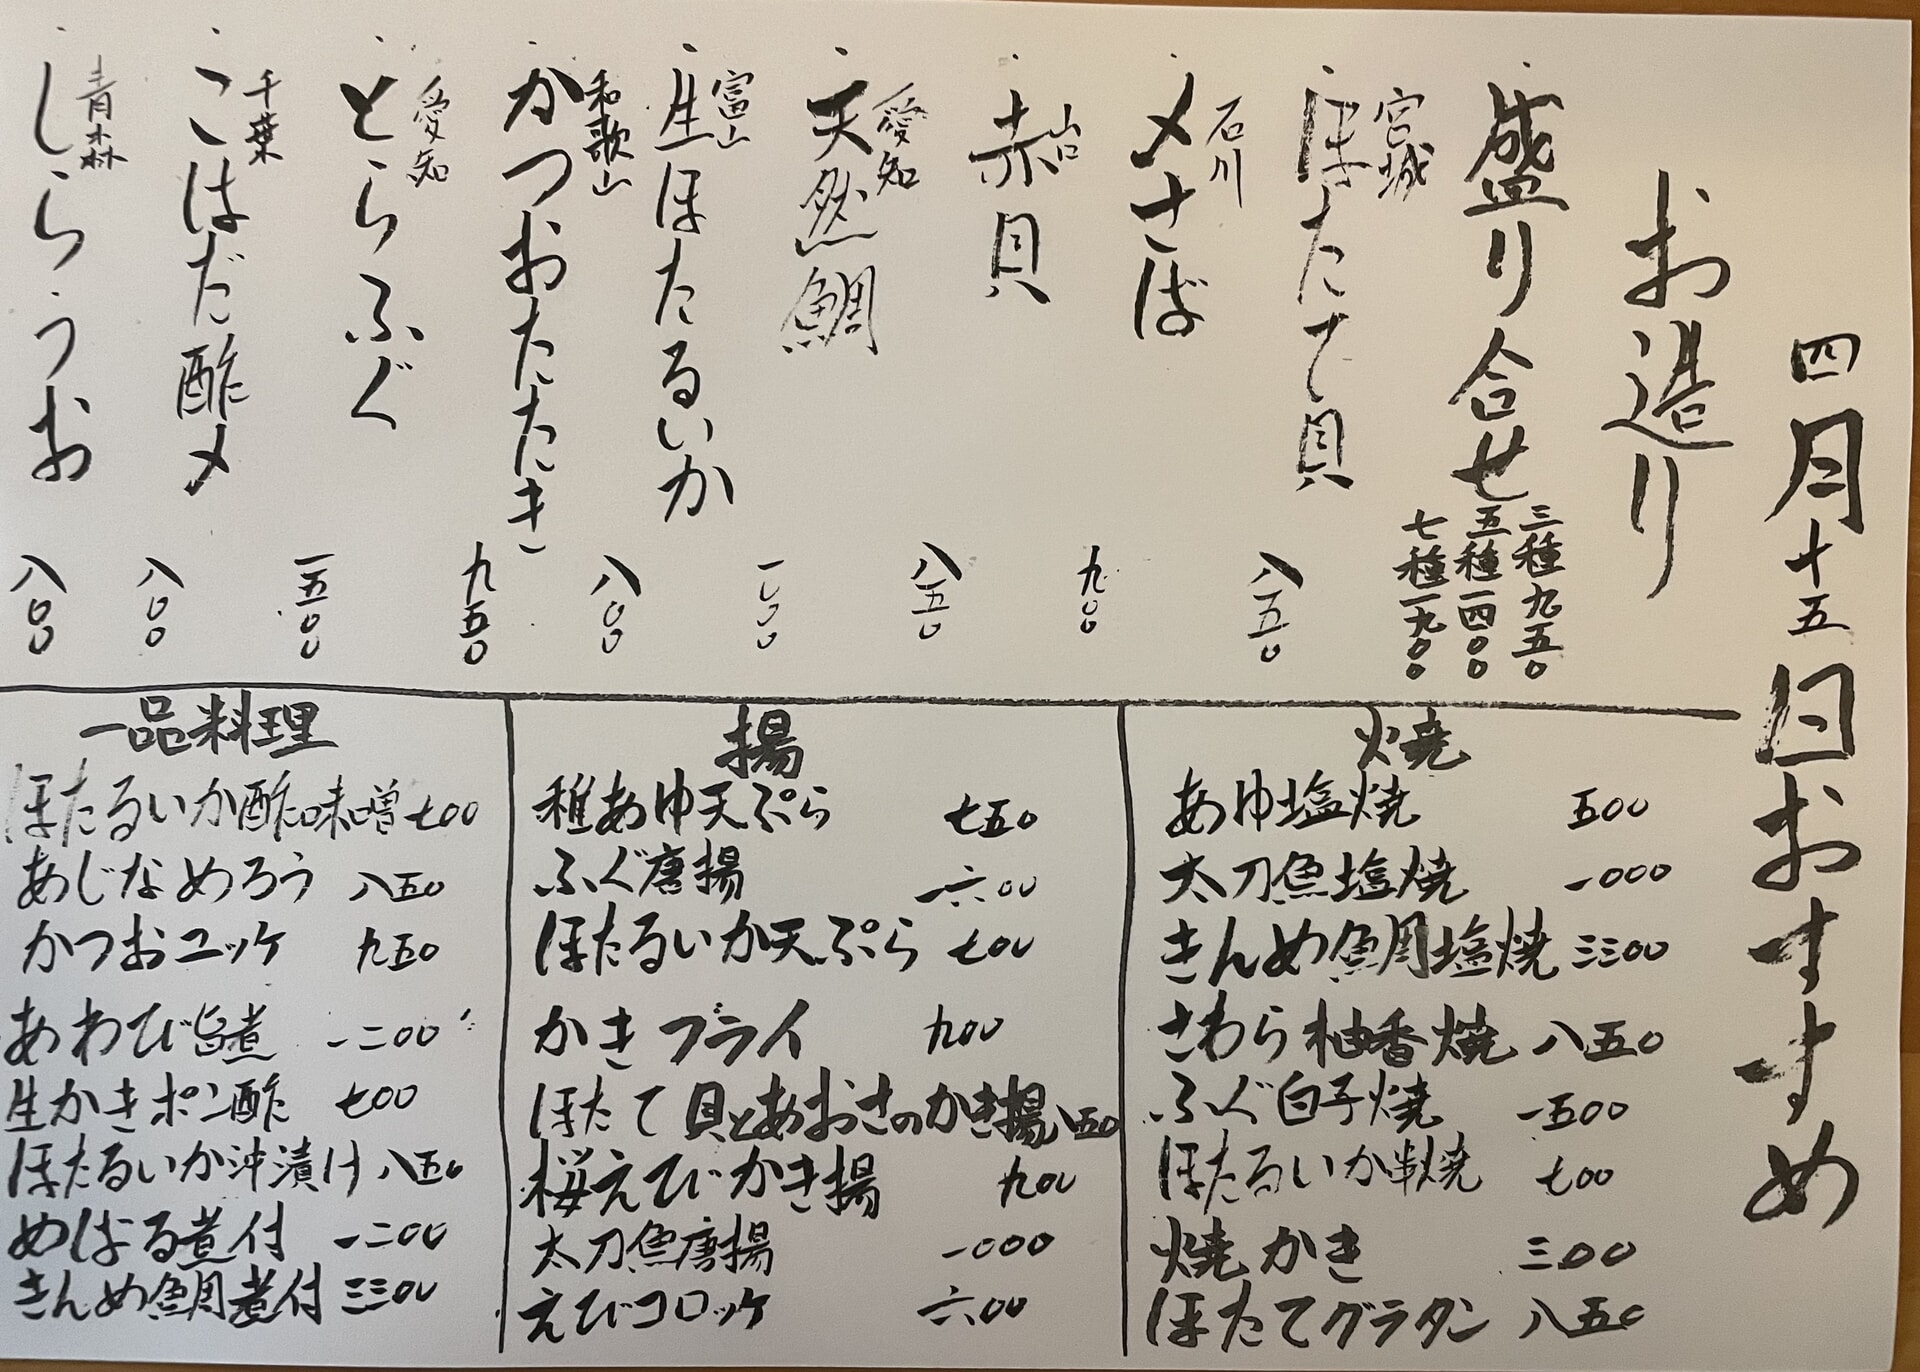 四月十五日おすすめ
お造り
盛り合せ
三種九五〇
五種一四〇〇
七種一九〇〇
宮城
ほたて貝 八五〇
石川
〆さば 九〇〇
山口
赤貝 八五〇
愛知
天然鯛 一〇〇〇
富山
生ほたるいか 八〇〇
和歌山
かつおたたき 九五〇
愛知
とらふぐ 一五〇〇
千葉
こはだ酢〆 八〇〇
青森
しらうお 八〇〇
焼
あゆ塩焼 五〇〇
太刀魚塩焼 一〇〇〇
きんめ鯛塩焼 三三〇〇
さわら柚香焼 八五〇
ふぐ白子焼 一五〇〇
ほたるいか串焼 七〇〇
焼かき 三〇〇
ほたてグラタン 八五〇
揚
稚あゆ天ぷら 七五〇
ふぐ唐揚 一六〇〇
ほたるいか天ぷら 七〇〇
かきフライ 九〇〇
ほたて貝とあおさのかき揚 八五〇
桜えびかき揚 九〇〇
太刀魚唐揚 一〇〇〇
えびコロッケ 六〇〇
一品料理
ほたるいか酢味噌 七〇〇
あじなめろう 八五〇
かつおユッケ 九五〇
あわび旨煮 一二〇〇
生かきポン酢 七〇〇
ほたるいか沖漬け 八五〇
めばる煮付 一二〇〇
きんめ鯛煮付 三三〇〇